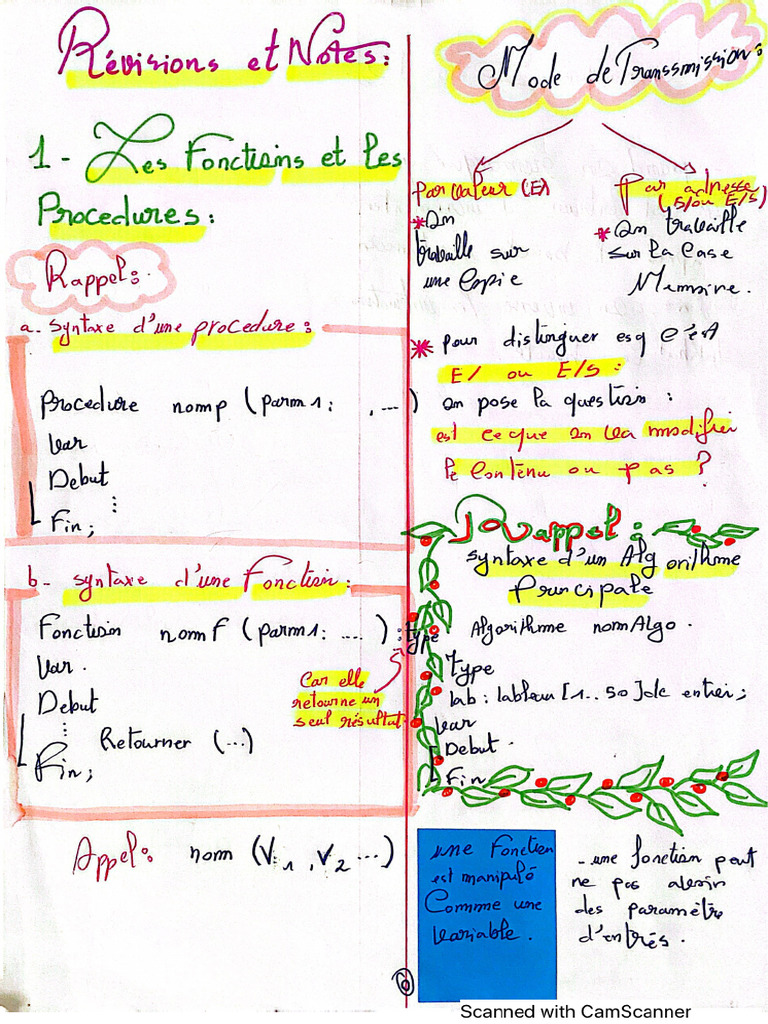 Révisions et Notes:
1- Les Fonctions et les
Procedures:
Rappel:
a. Syntaxe d'une procedure:
Procedure nomp (parm1: , ...)
Var
Debut
⋮
Fin;
b- syntaxe d'une Fonction:
Fonction nomf (parm1: ....) : type
Var.
Car elle
retourne un
seul résultat.
Debut
⋮ Retourner (...)
Fin;
Appel: nom (V1, V2 ...)
Mode de Transsmission:
Par valeur (E)
* On
travaille sur
une Copie
Par adresse
(S/ou E/S)
* On travaille
sur la Case
Memoire.
* pour distinguer esq c'est
E/ ou E/S:
on pose la question:
est ce que on va modifier
le contenu ou pas?
appel:
syntaxe d'un Algorithme
Principale
Algorithme nomAlgo.
Type
tab: tableau [1..50] de entier;
Var
Debut.
Fin
une Fonction
est manipulé
Comme une
variable.
- une fonction peut
ne pas avoir
des paramètre
d'entrés.
6
Scanned with CamScanner